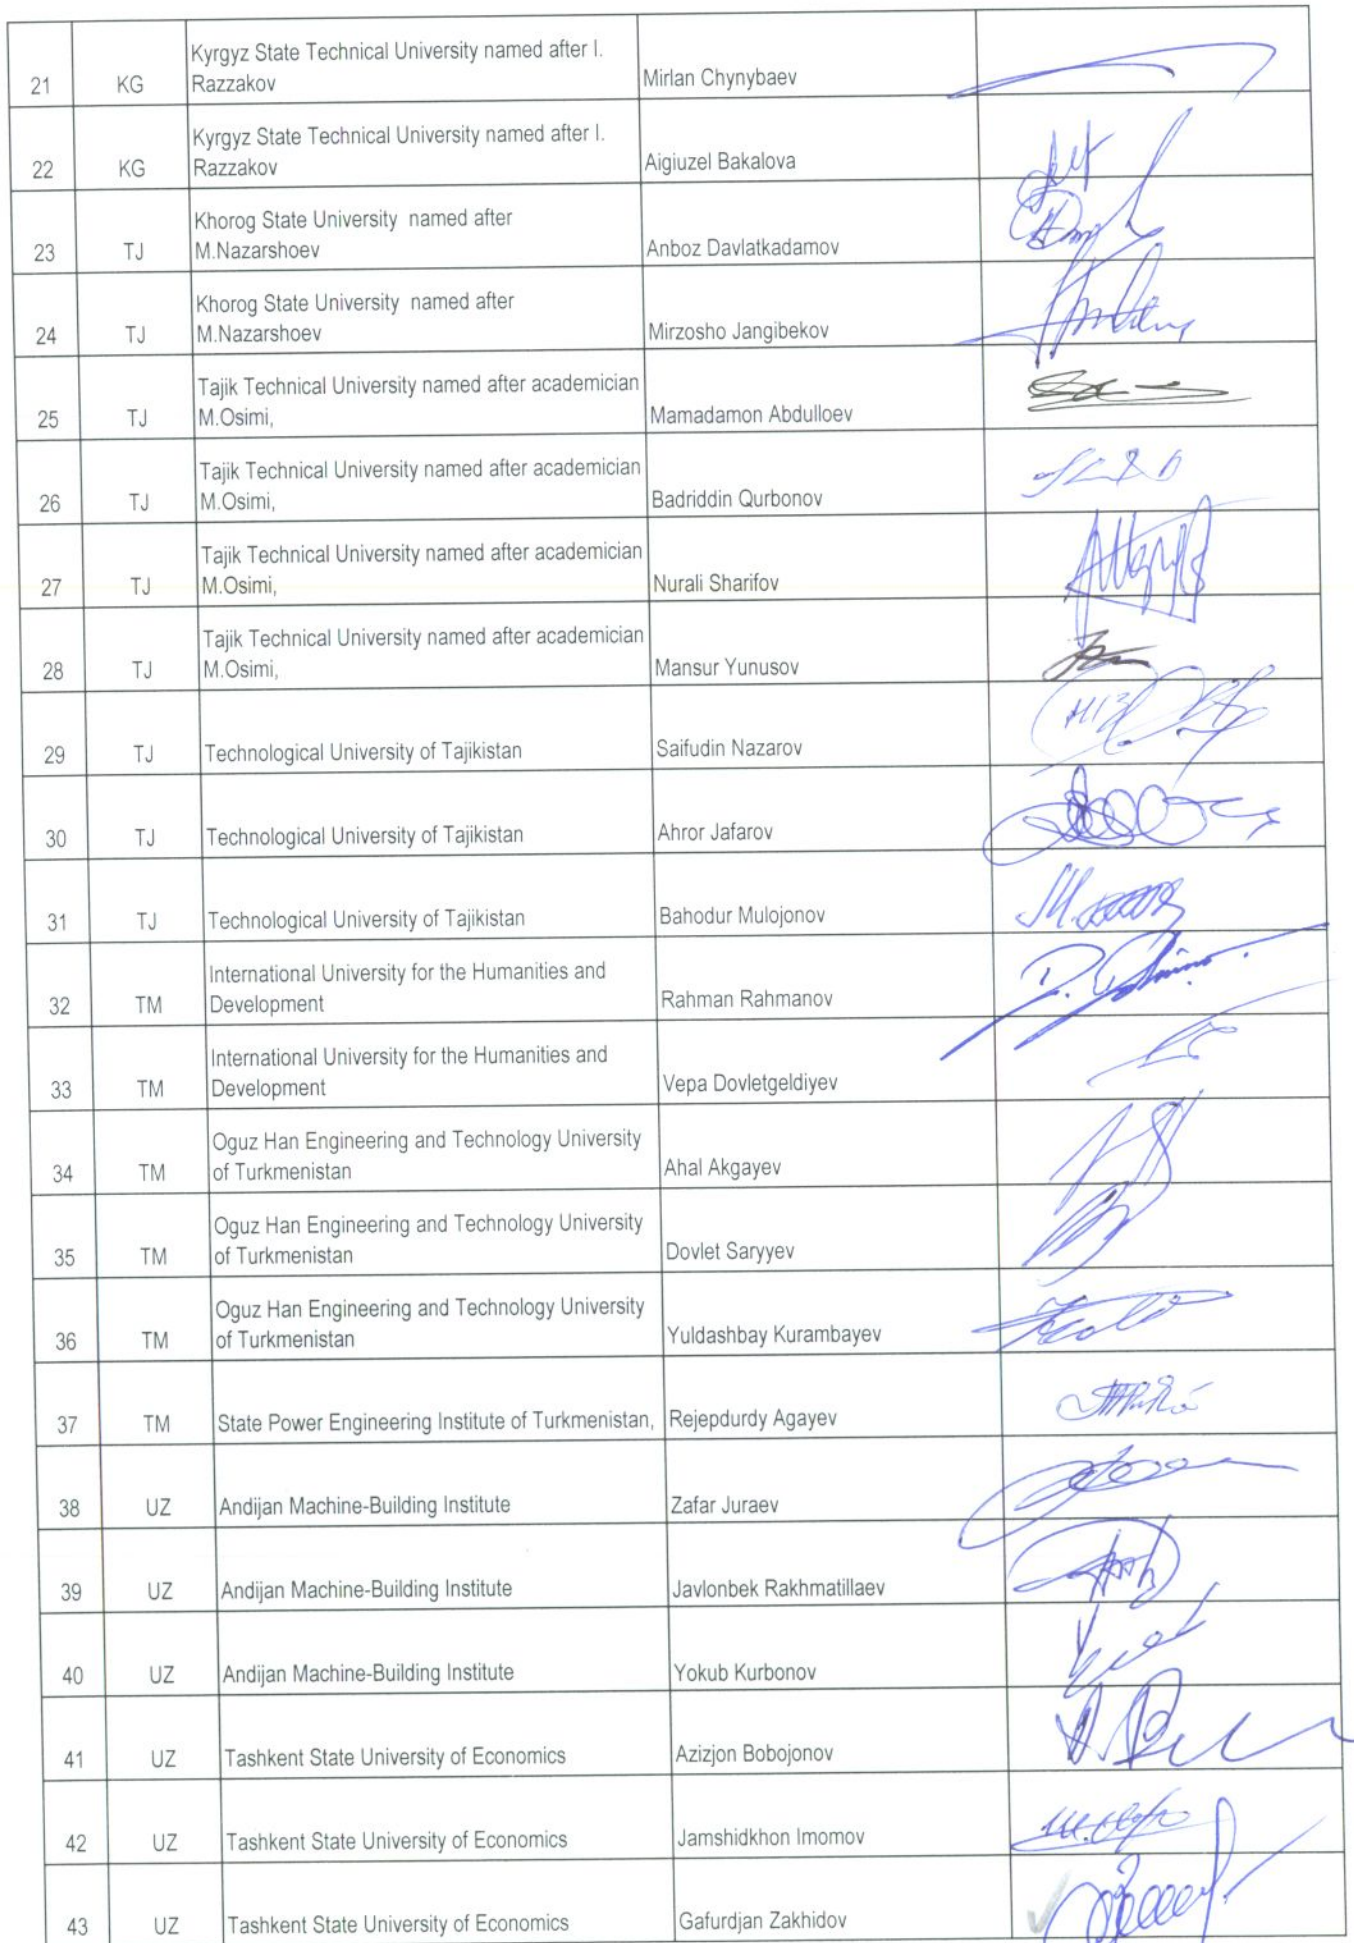 21 KG Kyrgyz State Technical University named after I.
Razzakov Mirlan Chynybaev
22 KG Kyrgyz State Technical University named after I.
Razzakov Aigiuzel Bakalova
23 TJ Khorog State University named after
M.Nazarshoev Anboz Davlatkadamov
24 TJ Khorog State University named after
M.Nazarshoev Mirzosho Jangibekov
25 TJ Tajik Technical University named after academician
M.Osimi, Mamadamon Abdulloev
26 TJ Tajik Technical University named after academician
M.Osimi, Badriddin Qurbonov
27 TJ Tajik Technical University named after academician
M.Osimi, Nurali Sharifov
28 TJ Tajik Technical University named after academician
M.Osimi, Mansur Yunusov
29 TJ Technological University of Tajikistan Saifudin Nazarov
30 TJ Technological University of Tajikistan Ahror Jafarov
31 TJ Technological University of Tajikistan Bahodur Mulojonov
32 TM International University for the Humanities and
Development Rahman Rahmanov
33 TM International University for the Humanities and
Development Vepa Dovletgeldiyev
34 TM Oguz Han Engineering and Technology University
of Turkmenistan Ahal Akgayev
35 TM Oguz Han Engineering and Technology University
of Turkmenistan Dovlet Saryyev
36 TM Oguz Han Engineering and Technology University
of Turkmenistan Yuldashbay Kurambayev
37 TM State Power Engineering Institute of Turkmenistan, Rejepdurdy Agayev
38 UZ Andijan Machine-Building Institute Zafar Juraev
39 UZ Andijan Machine-Building Institute Javlonbek Rakhmatillaev
40 UZ Andijan Machine-Building Institute Yokub Kurbonov
41 UZ Tashkent State University of Economics Azizjon Bobojonov
42 UZ Tashkent State University of Economics Jamshidkhon Imomov
43 UZ Tashkent State University of Economics Gafurdjan Zakhidov